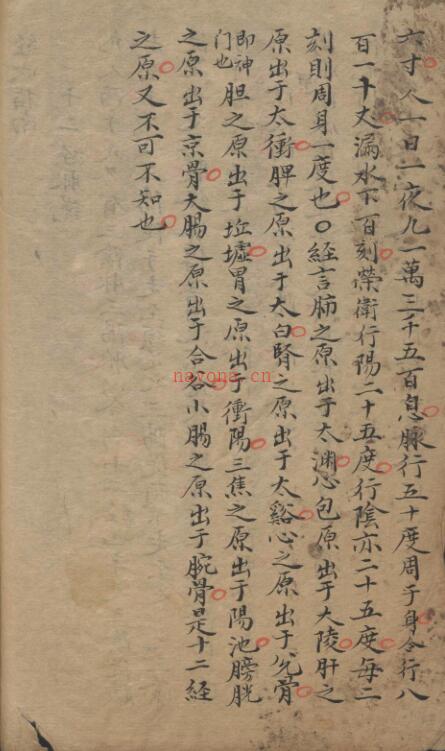 六寸人一日一夜凡一萬三千五百息脉行五十度周于身合行八
百一十丈漏水下百刻榮衛行陽二十五度行陰亦二十五度每二
刻則周身一度也〇經言肺之原出于太淵心包原出于大陵肝之
原出于太衝脾之原出于太白腎之原出于太谿心之原出于兌骨
即神門也胆之原出于坵墟胃之原出于衝陽三焦之原出于陽池膀胱
之原出于京骨大腸之原出于合谷小腸之原出于腕骨是十二經
之原又不可不知也
nayona.cn